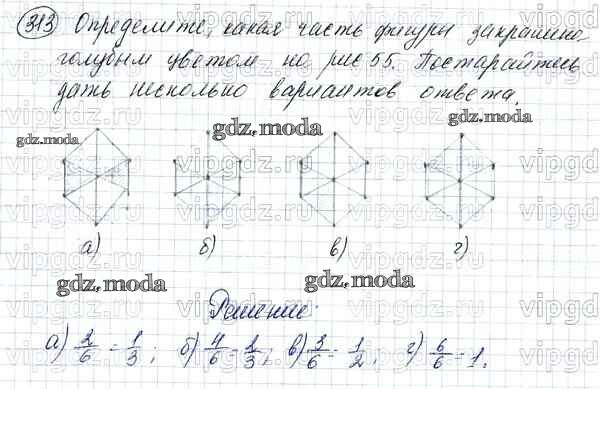 313 Определите, какая часть фигуры закрашена
голубым цветом на рис 55. Постарайтесь
дать несколько вариантов ответа.
gdz.moda
gdz.moda
gdz.moda
а) б) в) г)
gdz.moda
gdz.moda
Решение:
а) 2/6 = 1/3; б) 4/6 = 2/3; в) 3/6 = 1/2; г) 6/6 = 1.